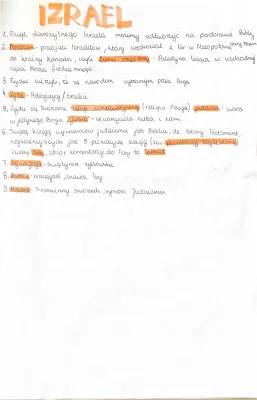 IZRAEL
1. Dzieje starożytnego Izraela możemy odtworzyć na podstawie Biblii
2. Abraham - praojciec Izraelitów, który wędrował z Ur w Mezopotamii
do krainy Kanaan, czyli Ziemi Obiecanej - Palestyna leżąca w wschodniej
części Morza Śródziemnego.
3. Żydzi wierzyli, że są narodem wybranym przez Boga
4. Żydzi - Hebrajczycy / Izraelici
5. Żydzi są twórcami religii monoteistycznej (religia 1 Boga) judaizm, wiara
w jedynego Boga "Jahwe" - stworzyciela nieba i ziemi.
6. Świętą księgą wyznawców judaizmu jest Biblia, do Stary Testament,
najważniejszych jest 5 pierwszych ksiąg (tzw.
zwane Torą, zbiór komentarzy do Tory to Talmud
7. Synagoga - świątynia żydowska
8. Rabin - nauczyciel, znawca Tory
9. Menora - 7-ramienny świecznik, symbol judaizmu